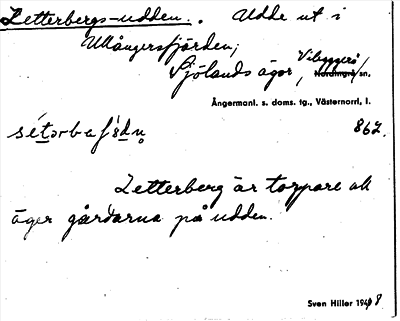 Zetterbergs-udden. Udde ut i
Ullångersfjärden;
Sjölands ägor, Vibyggerå
Nordingrå sn.
Ångermanl. s. doms. tg., Västernorrl. l.
862.
Zetterberg är torpare ok
äger gårdarna på udden.
Sven Hiller 1948